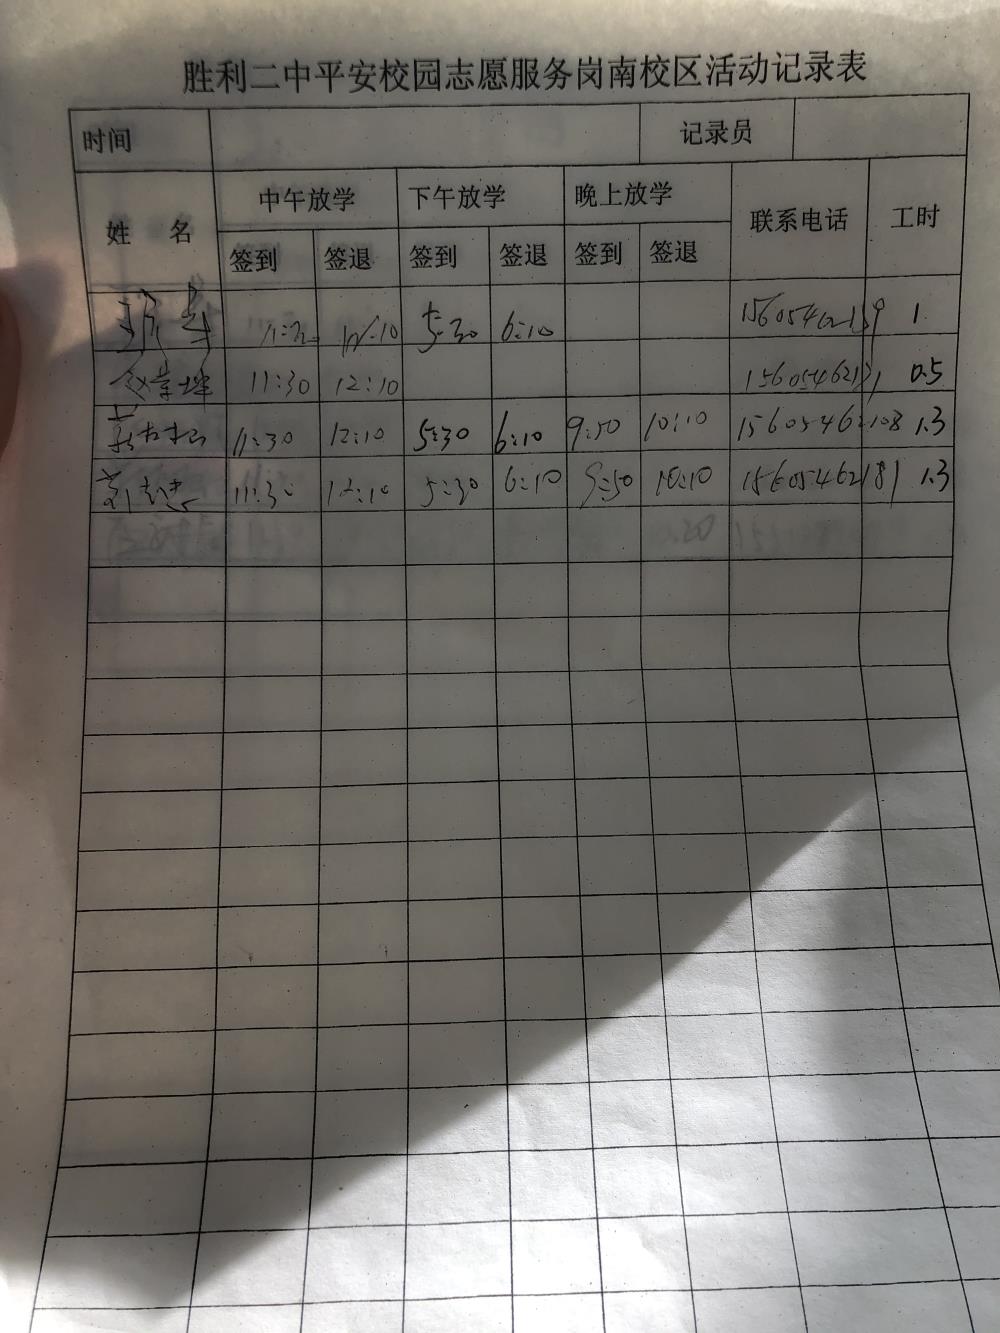 胜利二中平安校园志愿服务岗南校区活动记录表
时间 记录员
姓 名 中午放学 下午放学 晚上放学 联系电话 工时
签到 签退 签到 签退 签到 签退
11:30 12:10 5:30 6:10 1
11:30 12:10 0.5
11:30 12:10 5:30 6:10 9:50 10:10 15605462108 1.3
11:30 12:10 5:30 6:10 9:50 10:10 15605462181 1.3